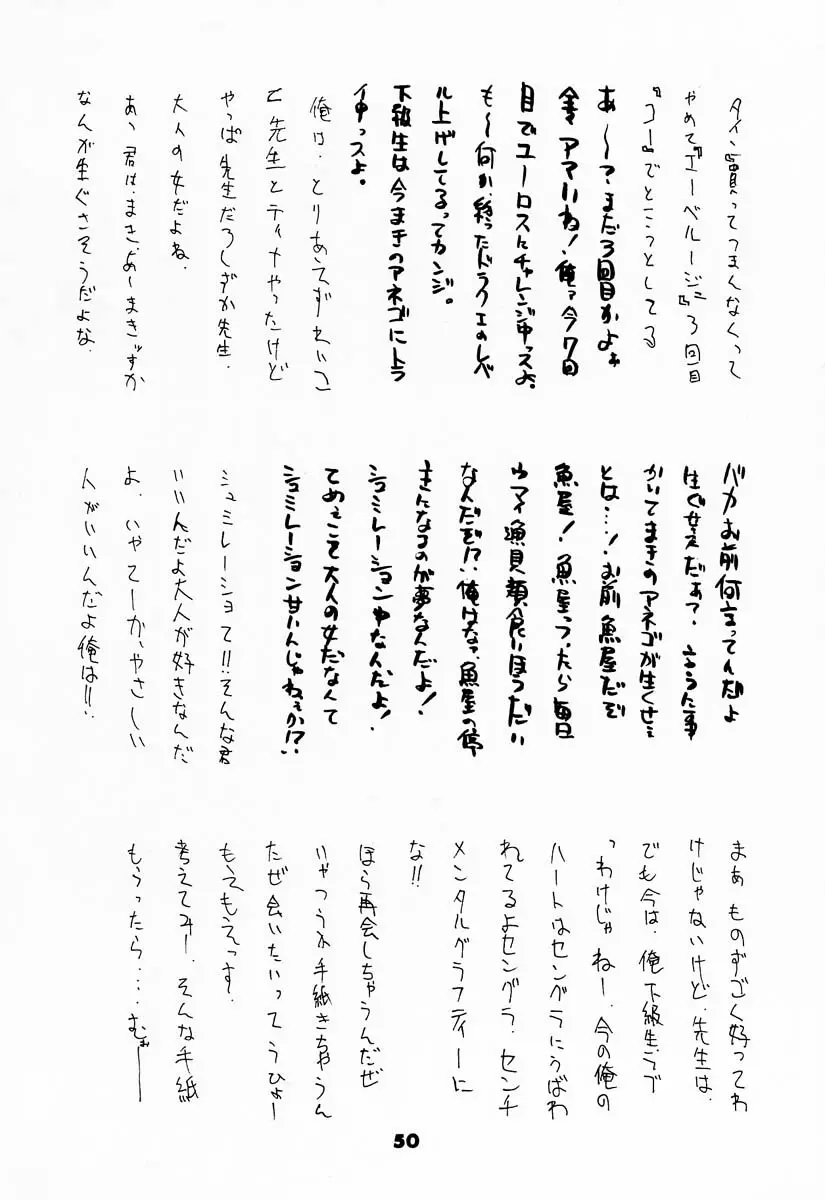 タイン買ってつまんなくって
やめて『エーベルージュ』3回目
『コー』でとことしてる
あ〜?まだ3回目かよぉ
金マアマいね!俺ァ今7回
目でユーロスにチャレンジ中っスよ。
も〜何か、終ったドラクエのレベ
ル上げしてるってカンジ。
下級生は今まきのアネゴにトラ
イ中っスよ。
俺は、とりあえずれいこ
と先生とティナやったけど
やっぱ先生だろしずか先生。
大人の女だよね。
あ、君は、まさ、あ〜まきっすか
なんが生ぐさそうだよな。
バカお前何言ってんだよ
生ぐせえだぁ?言うに事
かいてまきのアネゴが生くせえ
とは…!お前魚屋だぞ
魚屋!魚屋っつったら毎日
ウマイ漁貝類食いほうだい
なんだぞ!?俺はなァ、魚屋の停
主になるのが夢なんだよ!
シュミレーション中なんだよ!
てめェこそ大人の女だなんて
シュミレーション甘いんじゃねェか!?
シュミレーショて!!そんな君
いいんだよ大人が好きなんだ
よ、いやてーか、やさしい
人がいいんだよ俺は!!
まあ ものすごく好ってわ
けじゃないけど、先生は、
でも今は、俺下級生って
っわけじゃねー、今の俺の
ハートはセングラにうばわ
れてるよセングラ、センチ
メンタルグラフティーに
な!!
ほら再会しちゃうんだぜ
いやつうか手紙きちゃうん
だぜ会いたいってうひょー
もえもえっす。
考えてみー、そんな手紙
もらったら…むぉー
50